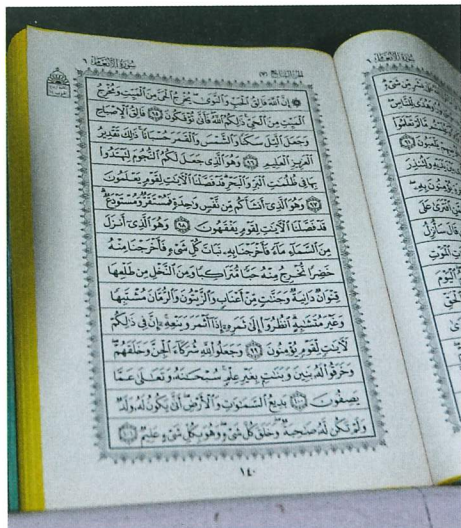 سُورَةُ الْأَنْعَامِ ٦
الْجُزْءُ السَّابِعُ (٧)
إِنَّ اللَّهَ فَالِقُ الْحَبِّ وَالنَّوَىٰ يُخْرِجُ الْحَيَّ مِنَ الْمَيِّتِ وَمُخْرِجُ
الْمَيِّتِ مِنَ الْحَيِّ ذَٰلِكُمُ اللَّهُ فَأَنَّىٰ تُؤْفَكُونَ ﴿٩٥﴾ فَالِقُ الْإِصْبَاحِ
وَجَعَلَ اللَّيْلَ سَكَنًا وَالشَّمْسَ وَالْقَمَرَ حُسْبَانًا ذَٰلِكَ تَقْدِيرُ
الْعَزِيزِ الْعَلِيمِ ﴿٩٦﴾ وَهُوَ الَّذِي جَعَلَ لَكُمُ النُّجُومَ لِتَهْتَدُوا
بِهَا فِي ظُلُمَاتِ الْبَرِّ وَالْبَحْرِ قَدْ فَصَّلْنَا الْآيَاتِ لِقَوْمٍ يَعْلَمُونَ
﴿٩٧﴾ وَهُوَ الَّذِي أَنْشَأَكُمْ مِنْ نَفْسٍ وَاحِدَةٍ فَمُسْتَقَرٌّ وَمُسْتَوْدَعٌ
قَدْ فَصَّلْنَا الْآيَاتِ لِقَوْمٍ يَفْقَهُونَ ﴿٩٨﴾ وَهُوَ الَّذِي أَنْزَلَ
مِنَ السَّمَاءِ مَاءً فَأَخْرَجْنَا بِهِ نَبَاتَ كُلِّ شَيْءٍ فَأَخْرَجْنَا مِنْهُ
خَضِرًا نُخْرِجُ مِنْهُ حَبًّا مُتَرَاكِبًا وَمِنَ النَّخْلِ مِنْ طَلْعِهَا
قِنْوَانٌ دَانِيَةٌ وَجَنَّاتٍ مِنْ أَعْنَابٍ وَالزَّيْتُونَ وَالرُّمَّانَ مُشْتَبِهًا
وَغَيْرَ مُتَشَابِهٍ انْظُرُوا إِلَىٰ ثَمَرِهِ إِذَا أَثْمَرَ وَيَنْعِهِ إِنَّ فِي ذَٰلِكُمْ
لَآيَاتٍ لِقَوْمٍ يُؤْمِنُونَ ﴿٩٩﴾ وَجَعَلُوا لِلَّهِ شُرَكَاءَ الْجِنَّ وَخَلَقَهُمْ
وَخَرَقُوا لَهُ بَنِينَ وَبَنَاتٍ بِغَيْرِ عِلْمٍ سُبْحَانَهُ وَتَعَالَىٰ عَمَّا
يَصِفُونَ ﴿١٠٠﴾ بَدِيعُ السَّمَاوَاتِ وَالْأَرْضِ أَنَّىٰ يَكُونُ لَهُ وَلَدٌ
وَلَمْ تَكُنْ لَهُ صَاحِبَةٌ وَخَلَقَ كُلَّ شَيْءٍ وَهُوَ بِكُلِّ شَيْءٍ عَلِيمٌ ﴿١٠١﴾
١٤٠